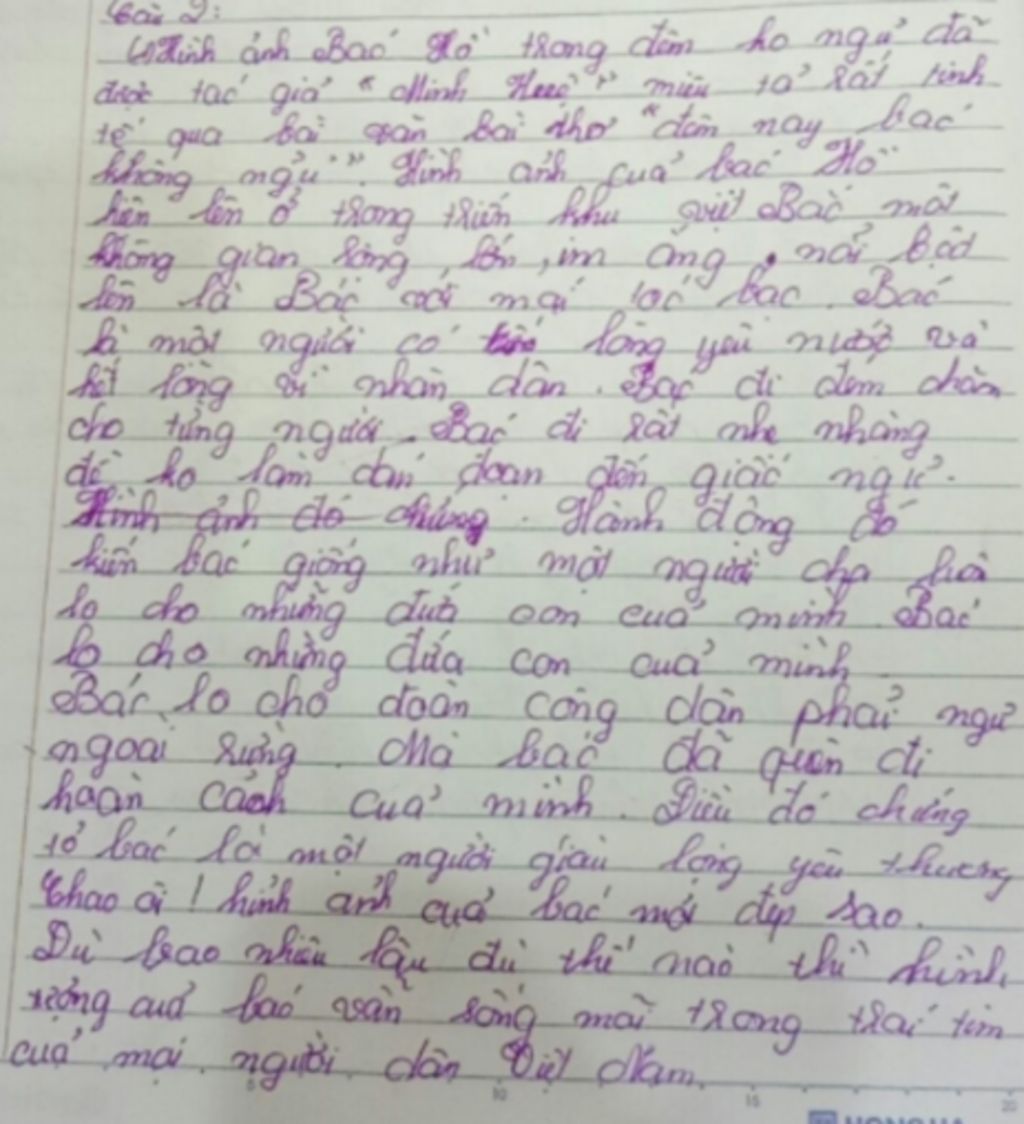 Bài 2:
Hình ảnh Bác Hồ trong đêm ko ngủ đã
được tác giả "Minh Huệ" miêu tả rất tinh
tế qua bài văn bài thơ "đêm nay bác
không ngủ". Hình ảnh của bác Hồ
hiên lên ở trong triến khu việt Bắc một
không gian rông lớn, im ắng, nổi bật
lên là Bác với mái tóc bạc. Bác
là một người có lòng yêu nước và
hết lòng vì nhân dân. Bác đi đem chăn
cho từng người. Bác đi rất nhẹ nhàng
để ko làm dán đoan đến giấc ngủ.
Hình ảnh đó chứng. Hành động đó
kiến bác giống như một người cha
lo cho những đứa con của mình Bác
lo cho những đứa con của mình
Bác lo cho đoàn công dân phải ngủ
ngoài rừng. Mà bác đã quên đi
hoàn cảnh của mình. Điều đó chứng
tỏ bác là một người giàu lòng yêu thương
Chao ôi! hình ảnh của bác mới đẹp sao.
Dù bao nhiêu lâu dù thế nào thì hình
tượng của bác vẫn sống mãi trong trái tim
của mọi người dân Việt Nam.
5 10 15 20
HONG HA